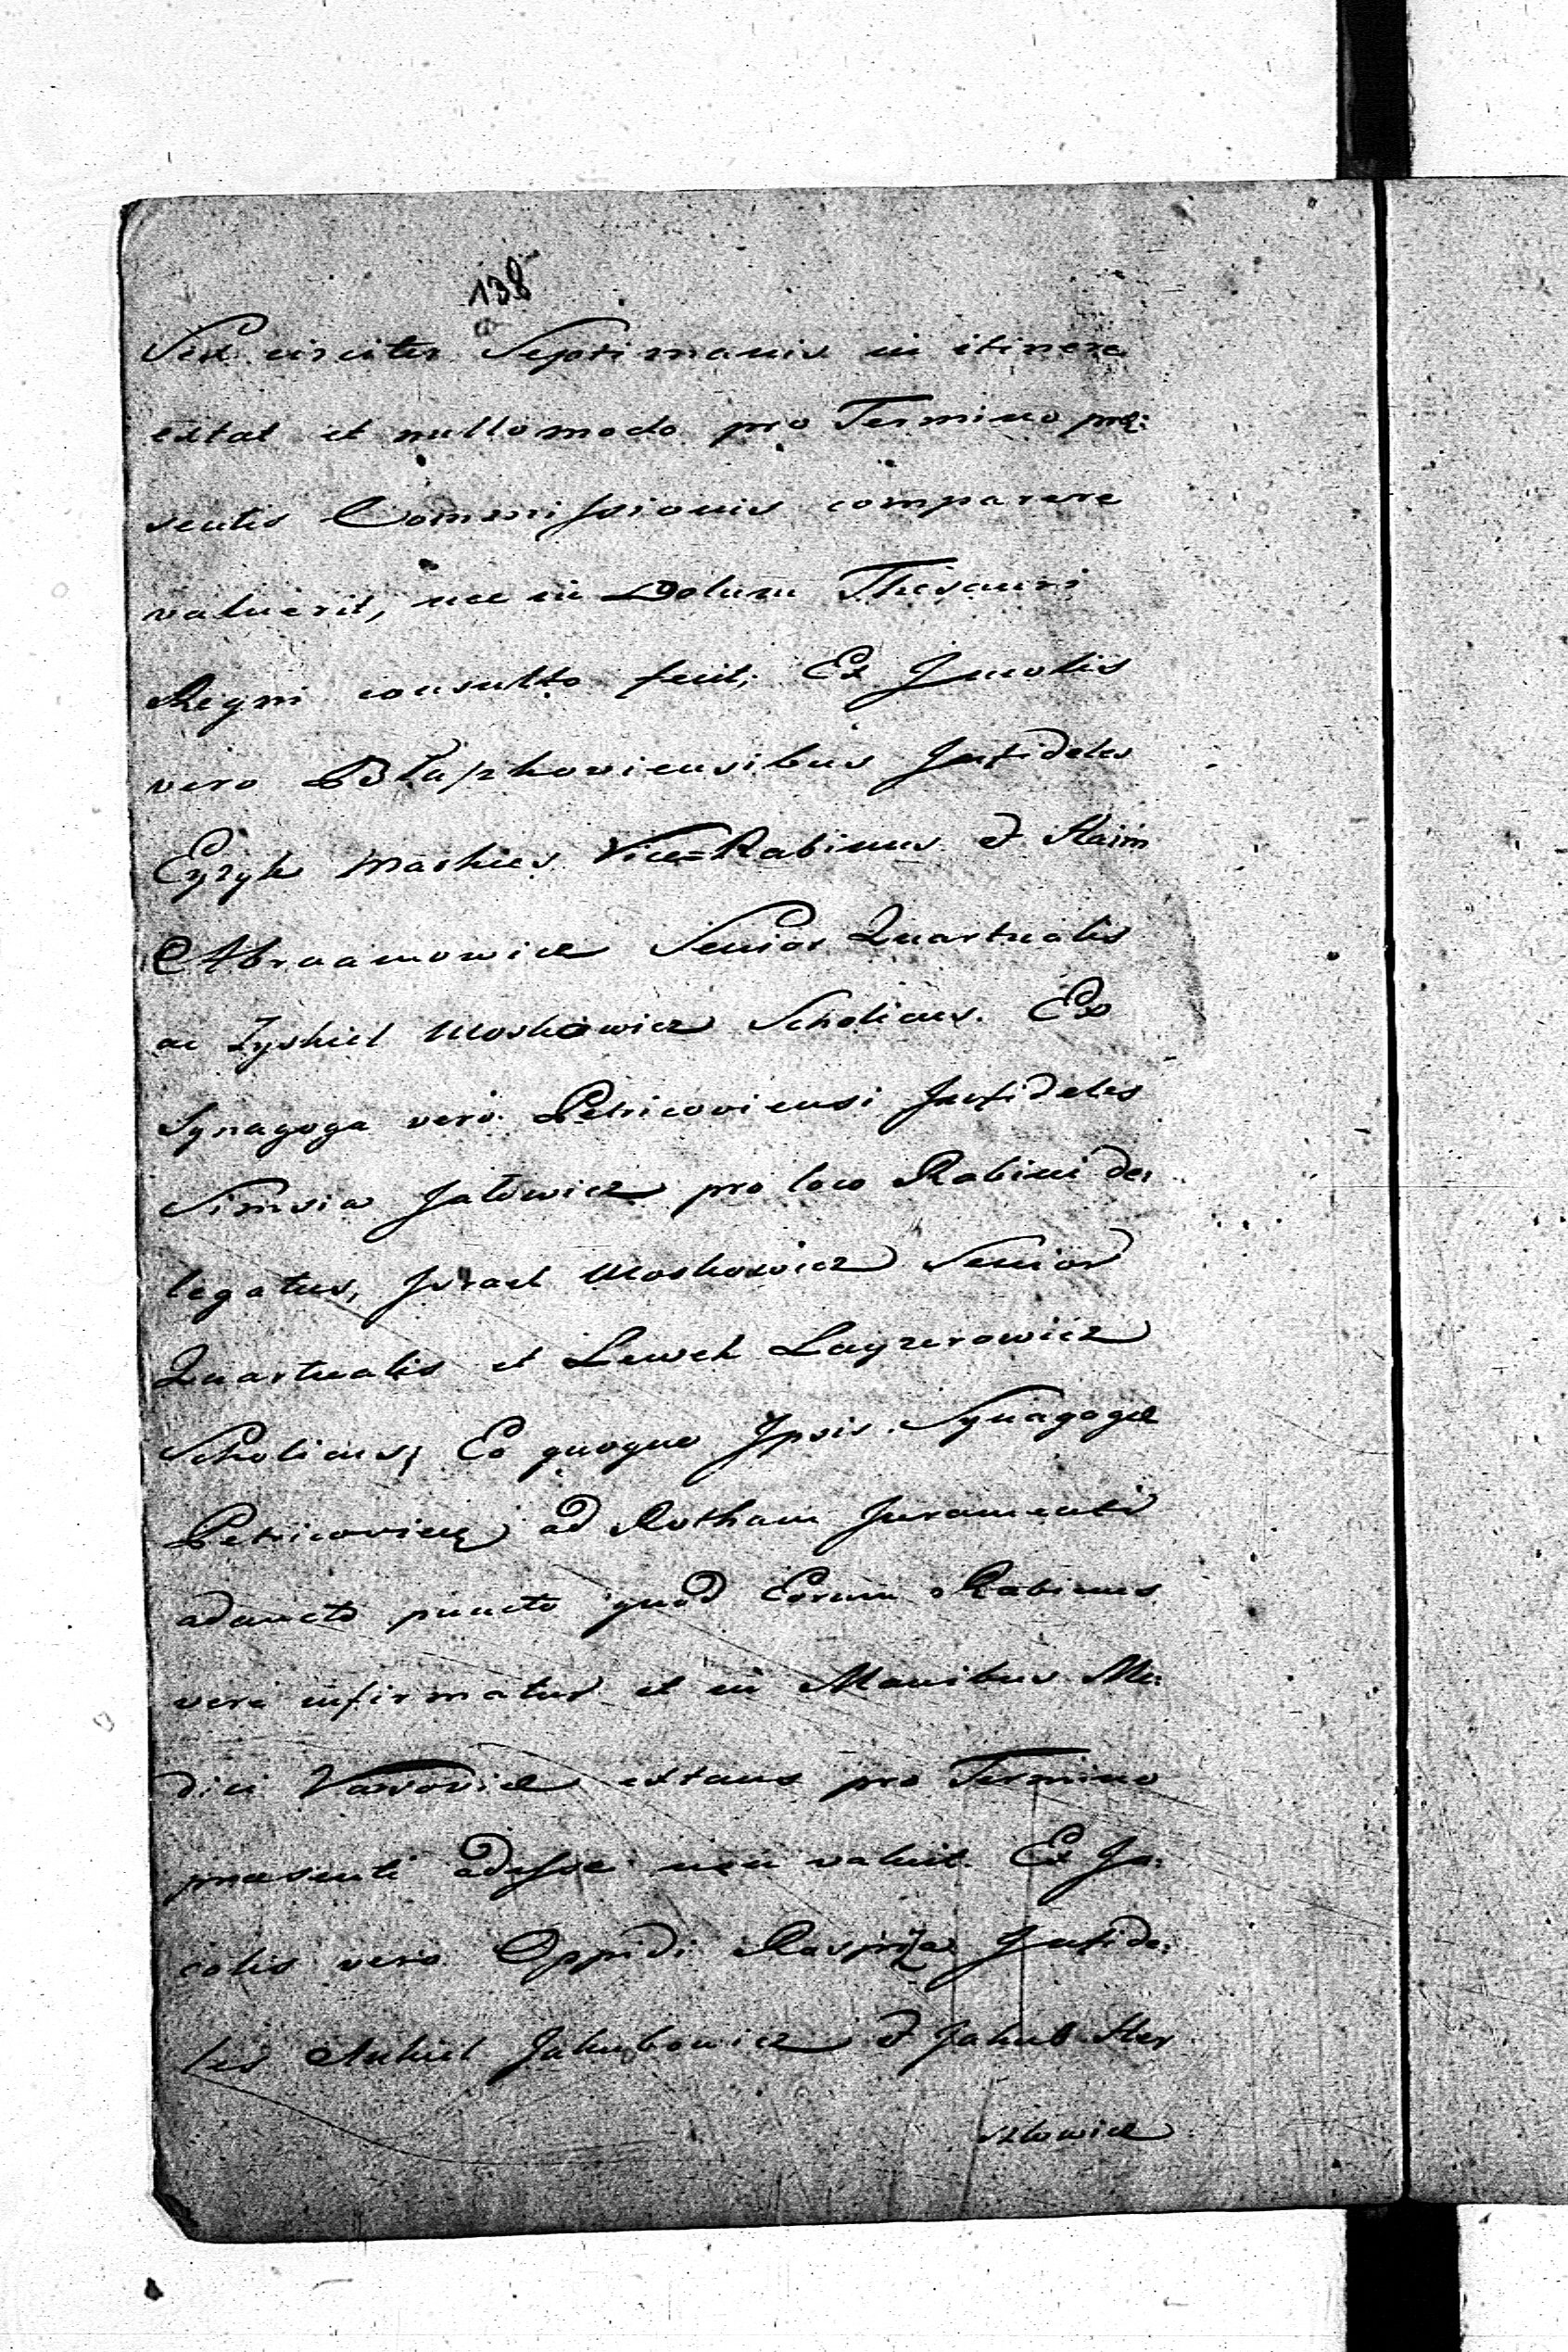 138
Sex circiter Septimanis in itinere
extat et nullomodo pro Termino præ:
sentis Commissionis comparere
valuerit, nec in Dolum Thesauri
Regni consulto fecit; Ex Incolis
vero Błaszkoviensibus Infideles
Eyzyk Maskies Vice=Rabinus et Haim
Abraamowicz Senior Quartualis
ac Zyskiel Moskowicz Scholicus. Ex
Synagoga vero Petricoviensi Infideles
Simsia Jatowicz pro loco Rabini de:
legatus, Israel Moskowicz Senior
Quartualis et Lewek Layzerowicz
Scholicus, Eo quoque Ipsis Synagogæ
Petricovien: ad Rotham Juramenti
adaucto puncto quod Eorum Rabinus
vere infirmatur et in Manibus Me:
dici Varsoviæ extans pro Termino
præsenti adesse non valuit. Ex In:
colis vero Oppidi Rosprza Infide:
les Ankiel Jakubowicz et Jakub Her
szkowicz